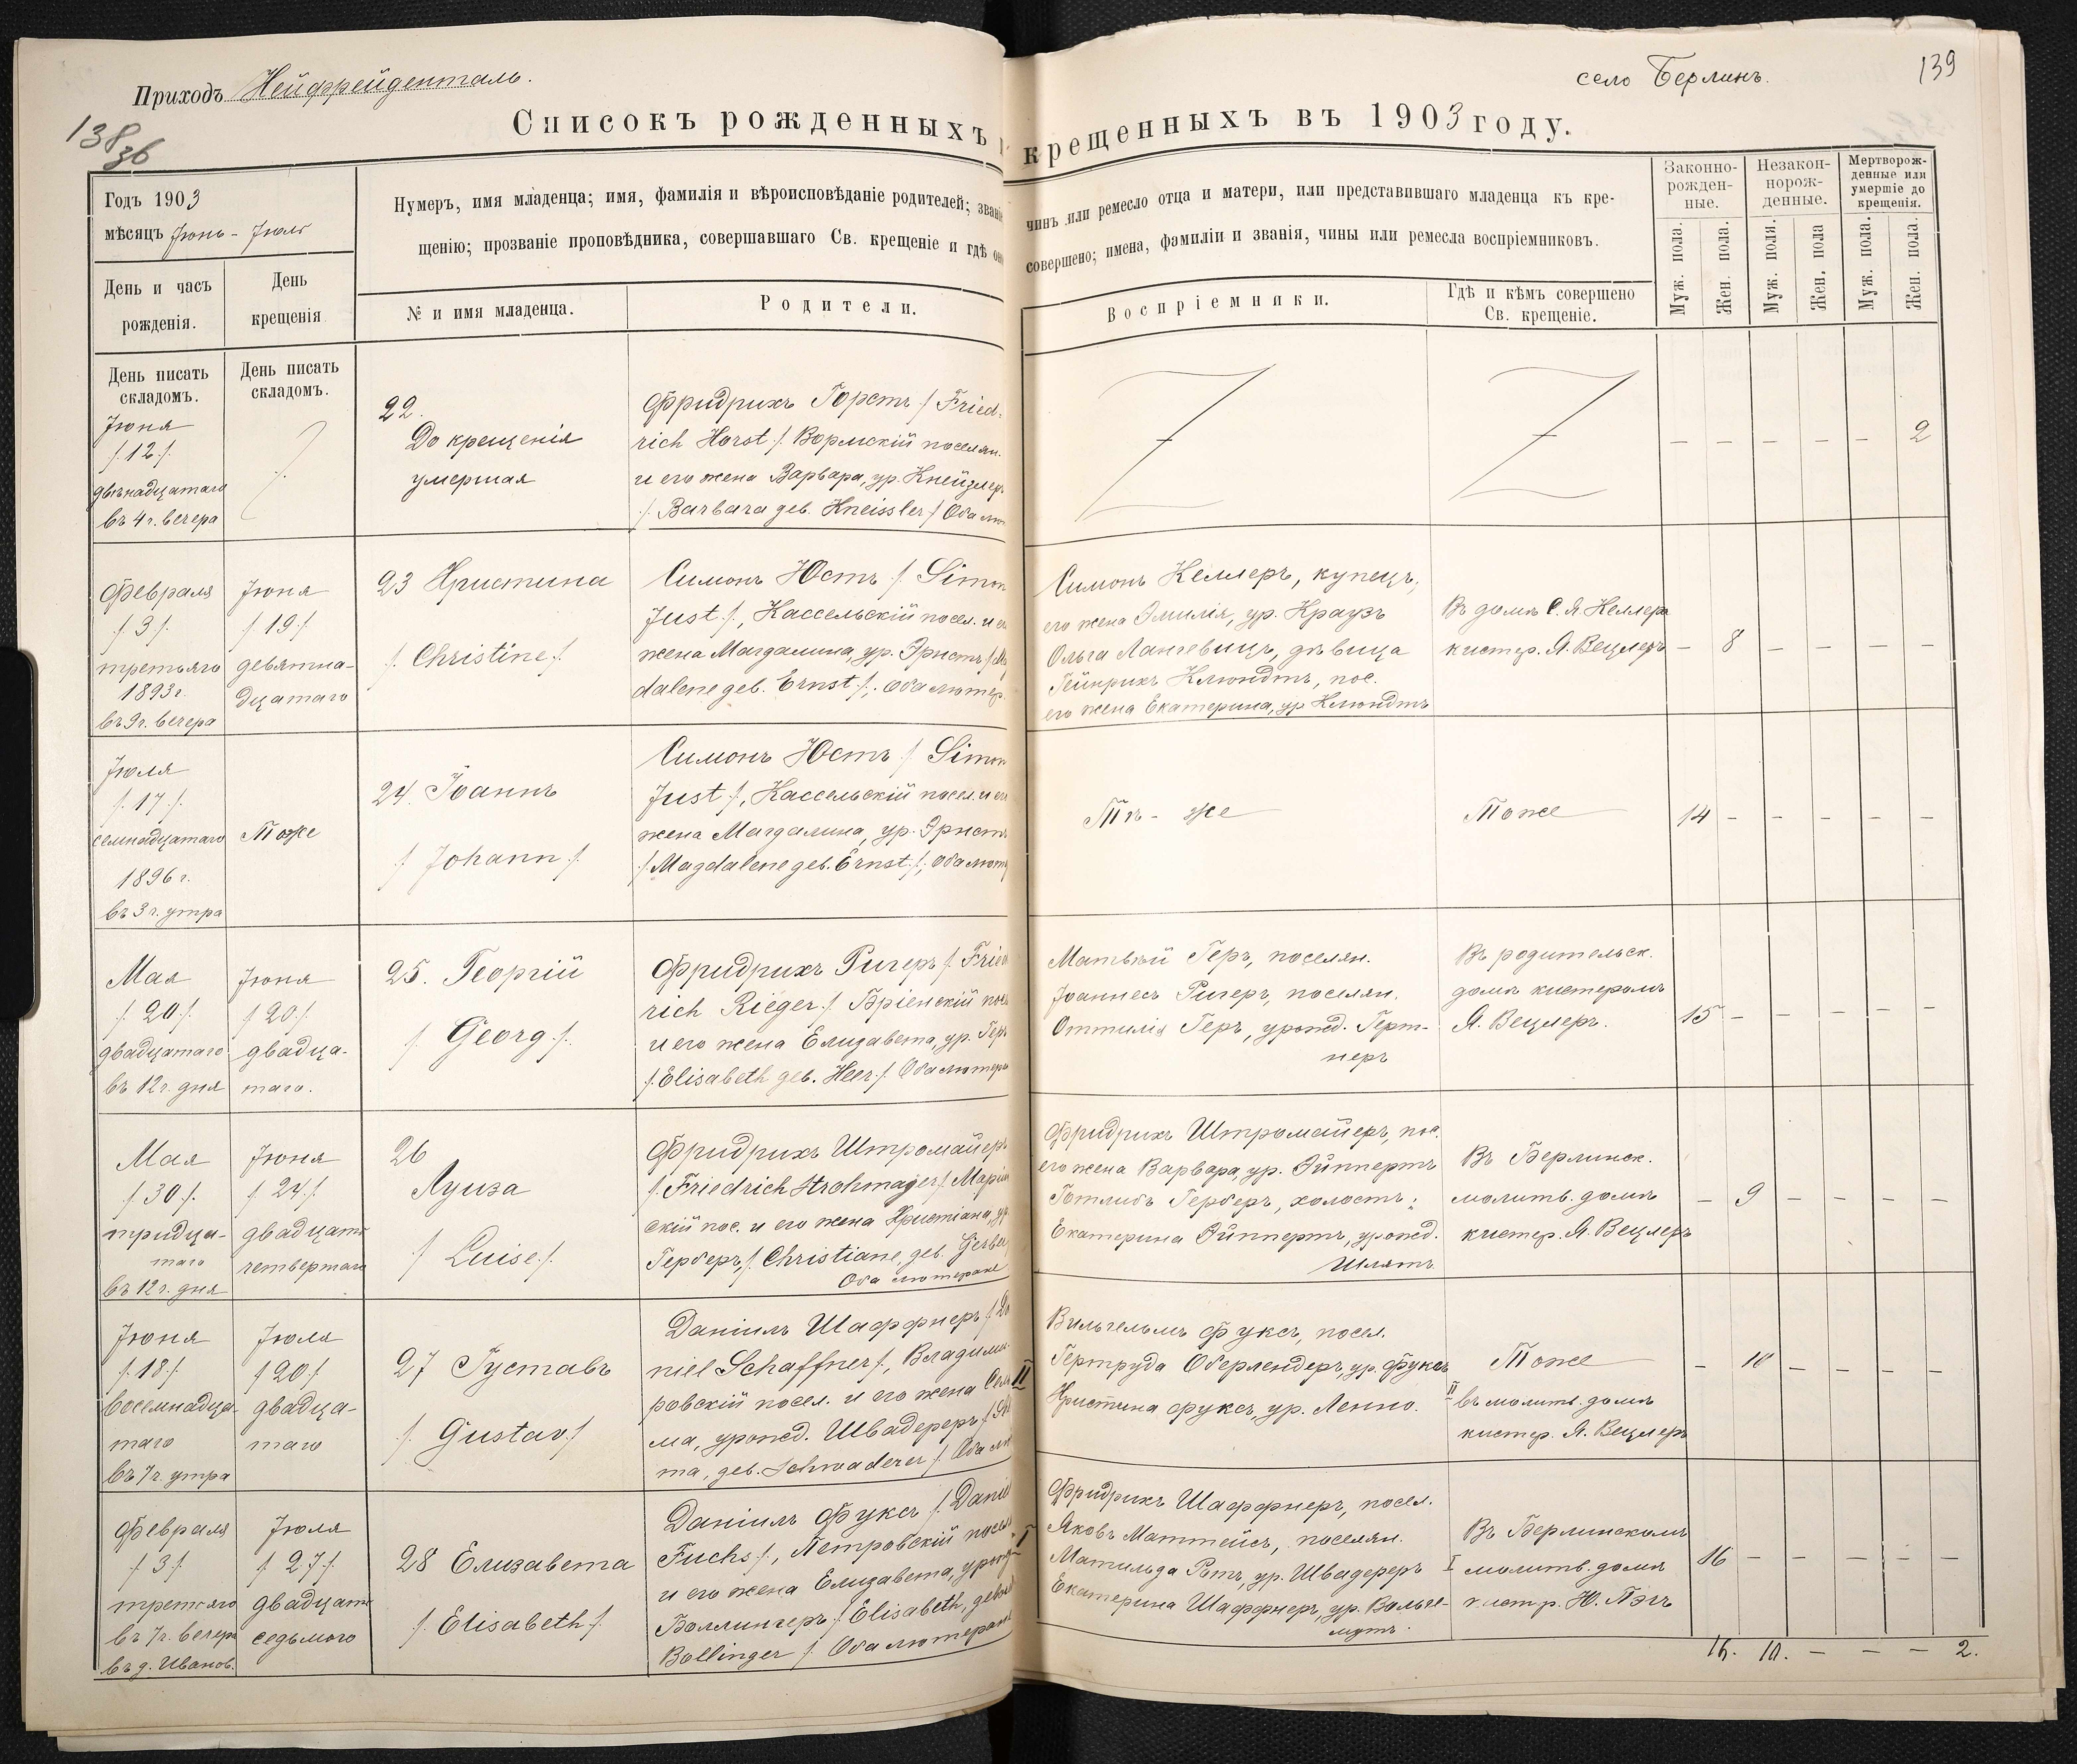 Приходъ Нейфрейденталь.
138
зб
Списокъ рожденныхъ
Годъ 1903
мѣсяцъ Іюнь - Іюль
Нумеръ, имя младенца; имя, фамилія и вѣроисповѣданіе родителей; званіе
щенію; прозваніе проповѣдника, совершавшаго Св. крещеніе и гдѣ
День и часъ
рожденія.
День
крещенія
№ и имя младенца.
Родители.
День писать
складомъ.
День писать
складомъ.
Іюня
/.12./.
двѣнадцатаго
въ 4 ч. вечера
22.
До крещенія
умершая
Фридрихъ Горстъ /. Fried-
rich Horst /. Вормскій поселян.
и его жена Варвара, ур. Кнейзлеръ
/. Barbara geb. Kneissler /. Оба
Февраля
/.3/.
третьяго
1893 г.
въ 9 ч. вечера
Іюня
/.19./.
девятна-
дцатаго
23 Христина
/. Christine /.
Симонъ Юстъ /. Simon
Just /., Кассельскій посел. и
жена Магдалина, ур. Эрнстъ /.
dalene geb. Ernst /.; оба лютер.
Іюля
/.17./.
семнадцатаго
1896 г.
въ 3 ч. утра
Тоже
24. Іоаннъ
/. Johann /.
Симонъ Юстъ /. Simon
Just /., Кассельскій посел. и его
жена Магдалина, ур. Эрнстъ
/. Magdalene geb. Ernst /.; оба
Мая
/.20./.
двадцатаго
въ 12 ч. дня
Іюня
/.20/.
двадца-
таго.
25. Георгій
/. Georg /.
Фридрихъ Ригеръ /. Fried
rich Rieger /. Бріенскій
и его жена Елизавета, ур. Геръ
/. Elisabeth geb. Heer /. Оба лютера
Мая
/.30/.
тридца-
таго
въ 12 ч. дня
Іюня
/.24./.
двадцать
четвертаго
26
Луиза
/. Luise /.
Фридрихъ Штромайеръ
/. Friedrich Strohmajer /. Маріин
скій пос. и его жена Христіана, ур.
Герберъ, /. Christiane, geb. Gerber
Оба лютеране
Іюня
/.18/.
восемнадца-
таго
въ 7 ч. утра
Іюля
/.20/.
двадца-
таго
27 Густавъ
/. Gustav /.
Даніилъ Шаффнеръ /. Da
niel Schaffner /., Владими-
ровскій посел. и его жена
ма, урожд. Швадереръ /.
ma, geb. Schwaderer /. Оба
Февраля
/.3/.
третьяго
въ 7 ч. вечера
въ д. Иванов.
Іюля
/.27/.
двадцать
седьмого
28 Елизавета
/. Elisabeth /.
Даніилъ Фуксъ /. Daniel
Fuchs /., Петровскій посел
и его жена Елизавета, урожд
Боллингеръ /. Elisabeth, geb
Bollinger /. Оба лютеране
село Берлинъ.
139
крещенныхъ въ 1903 году.
чинъ или ремесло отца и матери, или представившаго младенца къ кре-
совершено; имена, фамиліи и званія, чины или ремесла воспріемниковъ.
Воспріемники.
Гдѣ и кѣмъ совершено
Св. крещеніе.
Законно-
рожден-
ные.
Незакон-
норож-
денные.
Мертворож-
денные или
умершіе до
крещенія.
Муж. пола.
Жен. пола.
Муж. поля.
Жен. пола
Муж. пола.
Жен. пола.
– – – – – 2
Симонъ Келлеръ, купецъ,
его жена Эмилія, ур. Краузъ
Ольга Лангевицъ, дѣвица
Гейнрихъ Клюндтъ, пос.
его жена Екатерина, ур Клюндтъ
Въ домѣ С. Я. Келлера
кистер. Я. Вецлеръ
– 8 – – – –
Тѣ - же
Тоже
14 – – – – –
Матвѣй Геръ, поселян.
Іоаннесъ Ригеръ, поселян.
Оттилія Геръ, урожд. Герт-
неръ
Въ родительск.
домѣ кистеромъ
Я. Вецлеръ.
15 – – – – –
Фридрихъ Штромайеръ, пос.
его жена Варвара, ур. Эйппертъ
Готлибъ Герберъ, холостъ;
Екатерина Эйппертъ, урожд.
Шлятъ
Въ Берлинск.
молитв. домѣ
кистер. Я. Вецлеръ
– 9 – – – –
II
Вильгельмъ Фуксъ, посел.
Гертруда Оберлендеръ, ур. Фуксъ
Христина Фуксъ, ур. Ленно.
Тоже
II въ молитв. домѣ
кистер. Я. Вецлеръ
– 10 – – – –
I
Фридрихъ Шаффнеръ, посел.
Яковъ Маттейсъ, поселян.
Матильда Ротъ, ур. Швадереръ
Екатерина Шаффнеръ, ур. Вольге-
мутъ.
Въ Берлинскомъ
I молитв. домѣ
кистр. Ю. Пэчъ
16 – – – – –
16. 10. – – – 2.